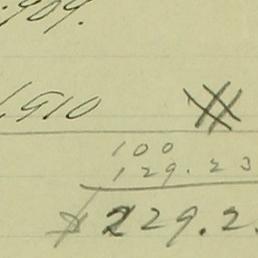 .909.
1,910
100
129.23
229.2